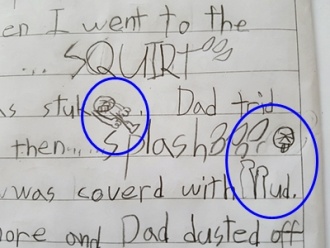 en I went to the
... SQUIRT
as stuk. Dad trid
then... splash
was coverd with Mud.
ore and Dad dusted off